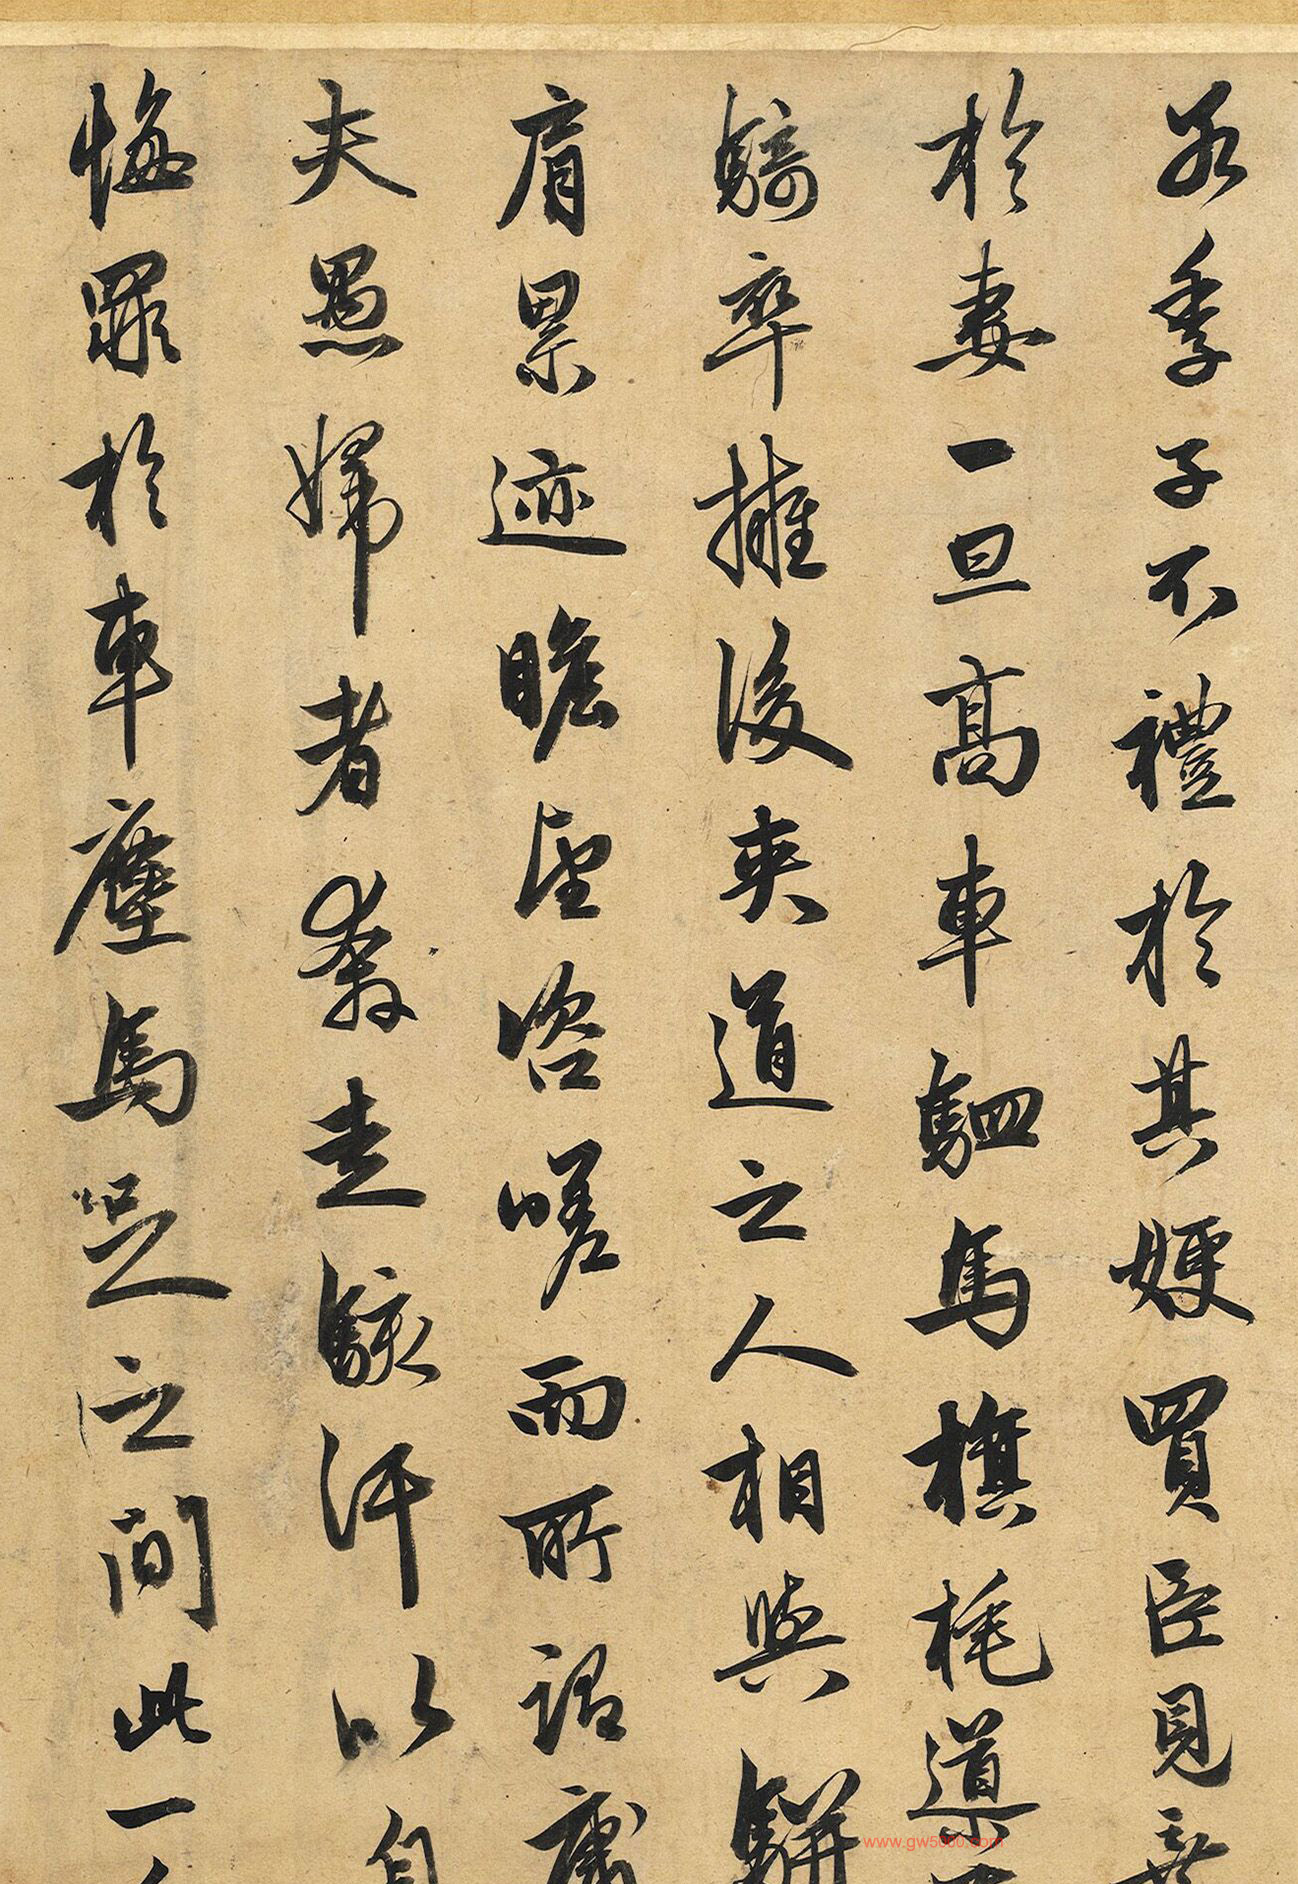 若季子不禮於其嫂買臣見棄
於妻一旦高車駟馬旗旄導
騎卒擁後夾道之人相與駢
肩累迹瞻望咨嗟而所謂庸
夫愚婦者奔走駭汗以自
悔罪於車塵馬足之間此一
www.gw5000.com